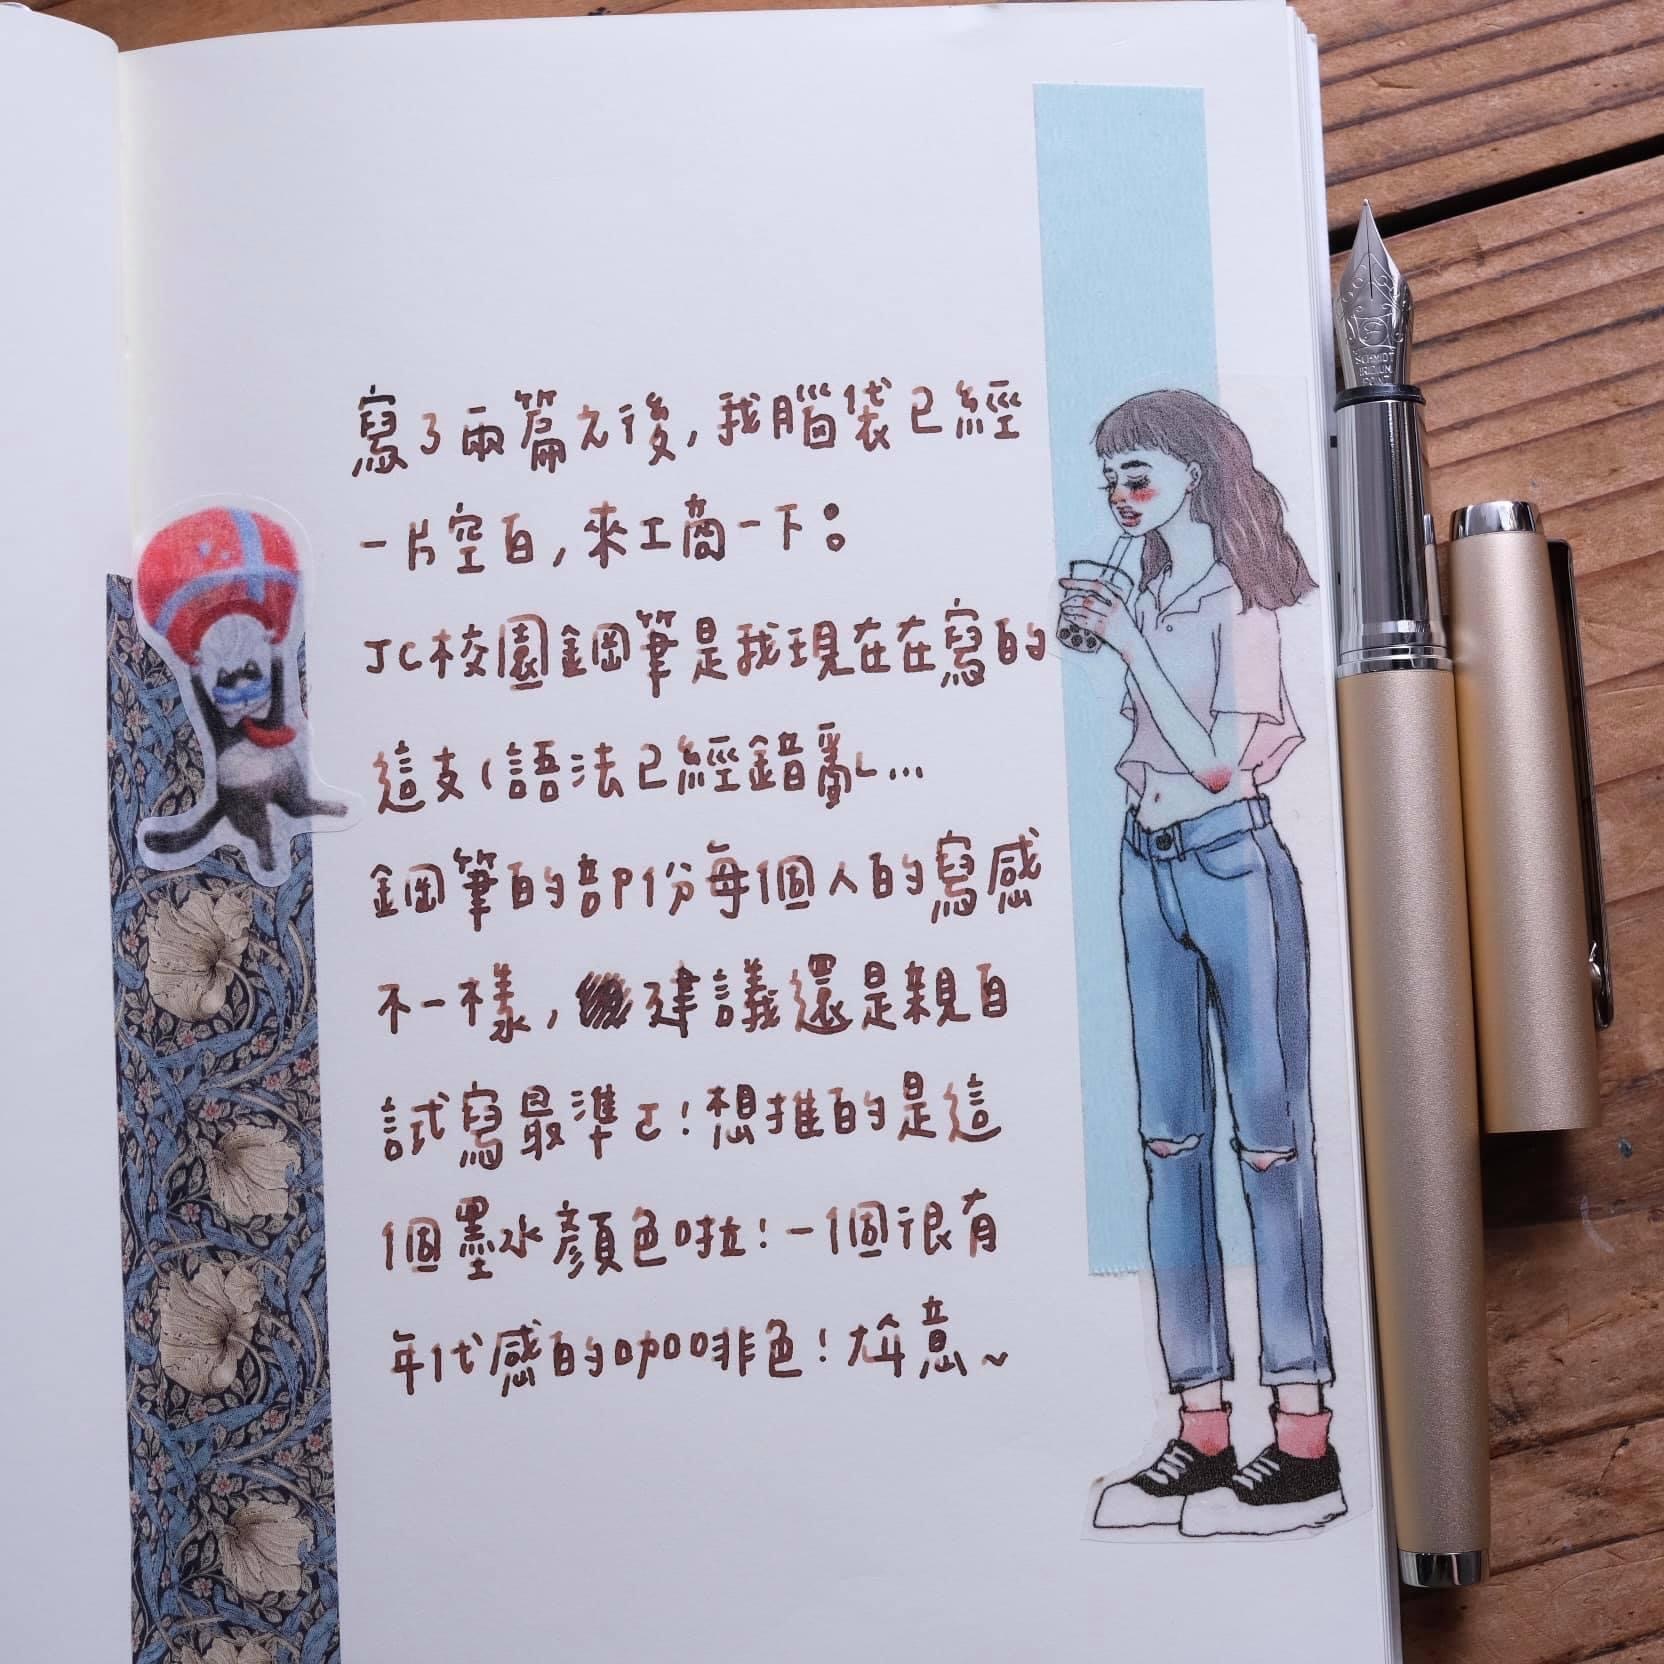 寫了兩篇之後,我腦袋已經
一片空白,來工商一下:
JC校園鋼筆是我現在在寫的
這支(語法已經錯亂...
鋼筆的部份每個人的寫感
不一樣,建議還是親自
試寫最準ㄛ!想推的是這
個墨水顏色啦!一個很有
年代感的咖啡色!尬意~
SCHMIDT
IRIDIUM
POINT